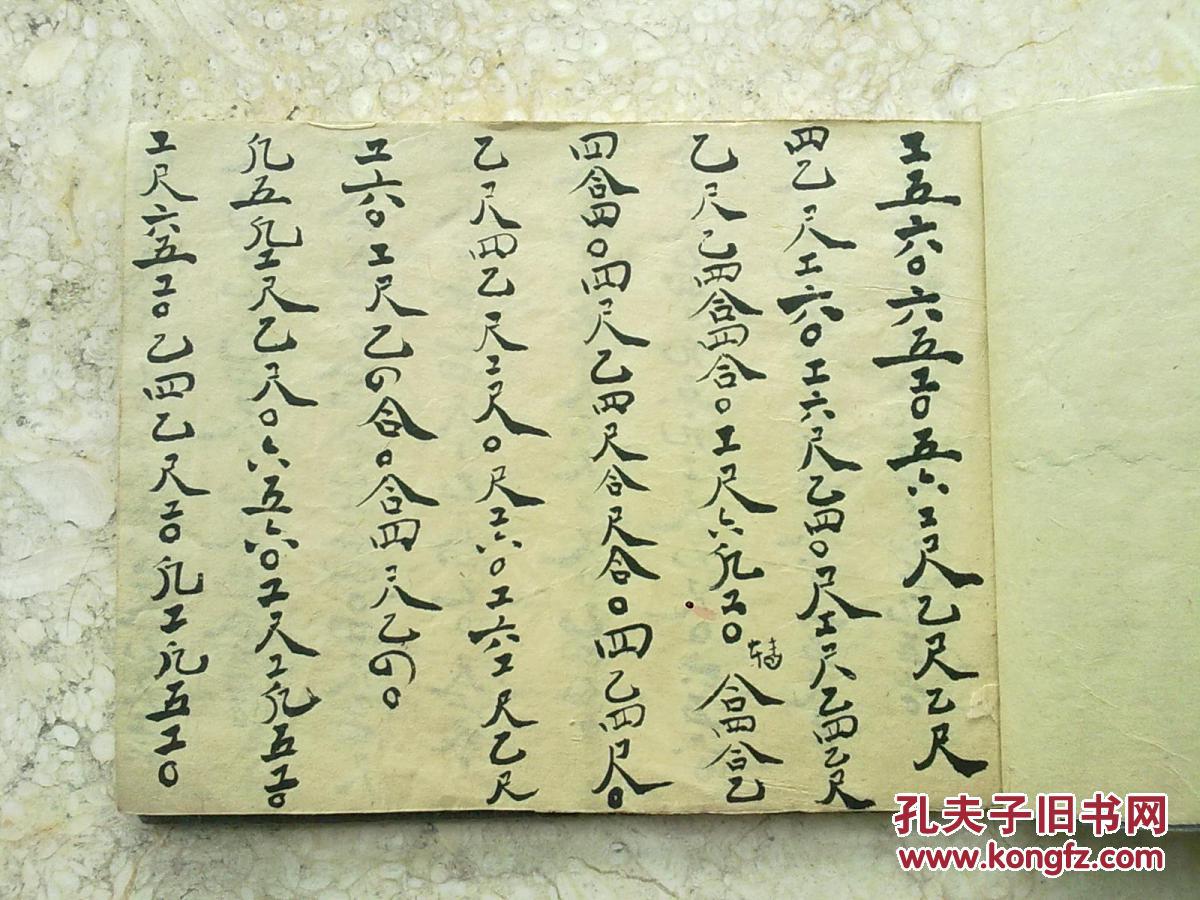 工五六〇六五工〇五六工尺乙尺乙尺
四乙尺工六〇工六尺乙四〇尺工尺乙四乙尺
乙尺乙四合四合〇工尺六凡工〇合四合乙
四合四〇四尺乙四尺合尺合〇四乙四尺〇
乙尺四乙尺工尺〇尺工六〇工六工尺乙尺
工六〇工尺乙四合〇合四尺乙四〇
凡五凡工尺乙尺〇六五六〇工尺工凡五工〇
工尺六五工〇乙四乙尺工〇凡工凡五工〇
孔夫子旧书网
www.kongfz.com